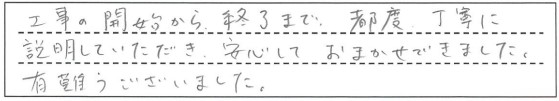 工事の開始から、終了まで、都度、丁寧に
説明していただき、安心しておまかせできました。
有難うございました。